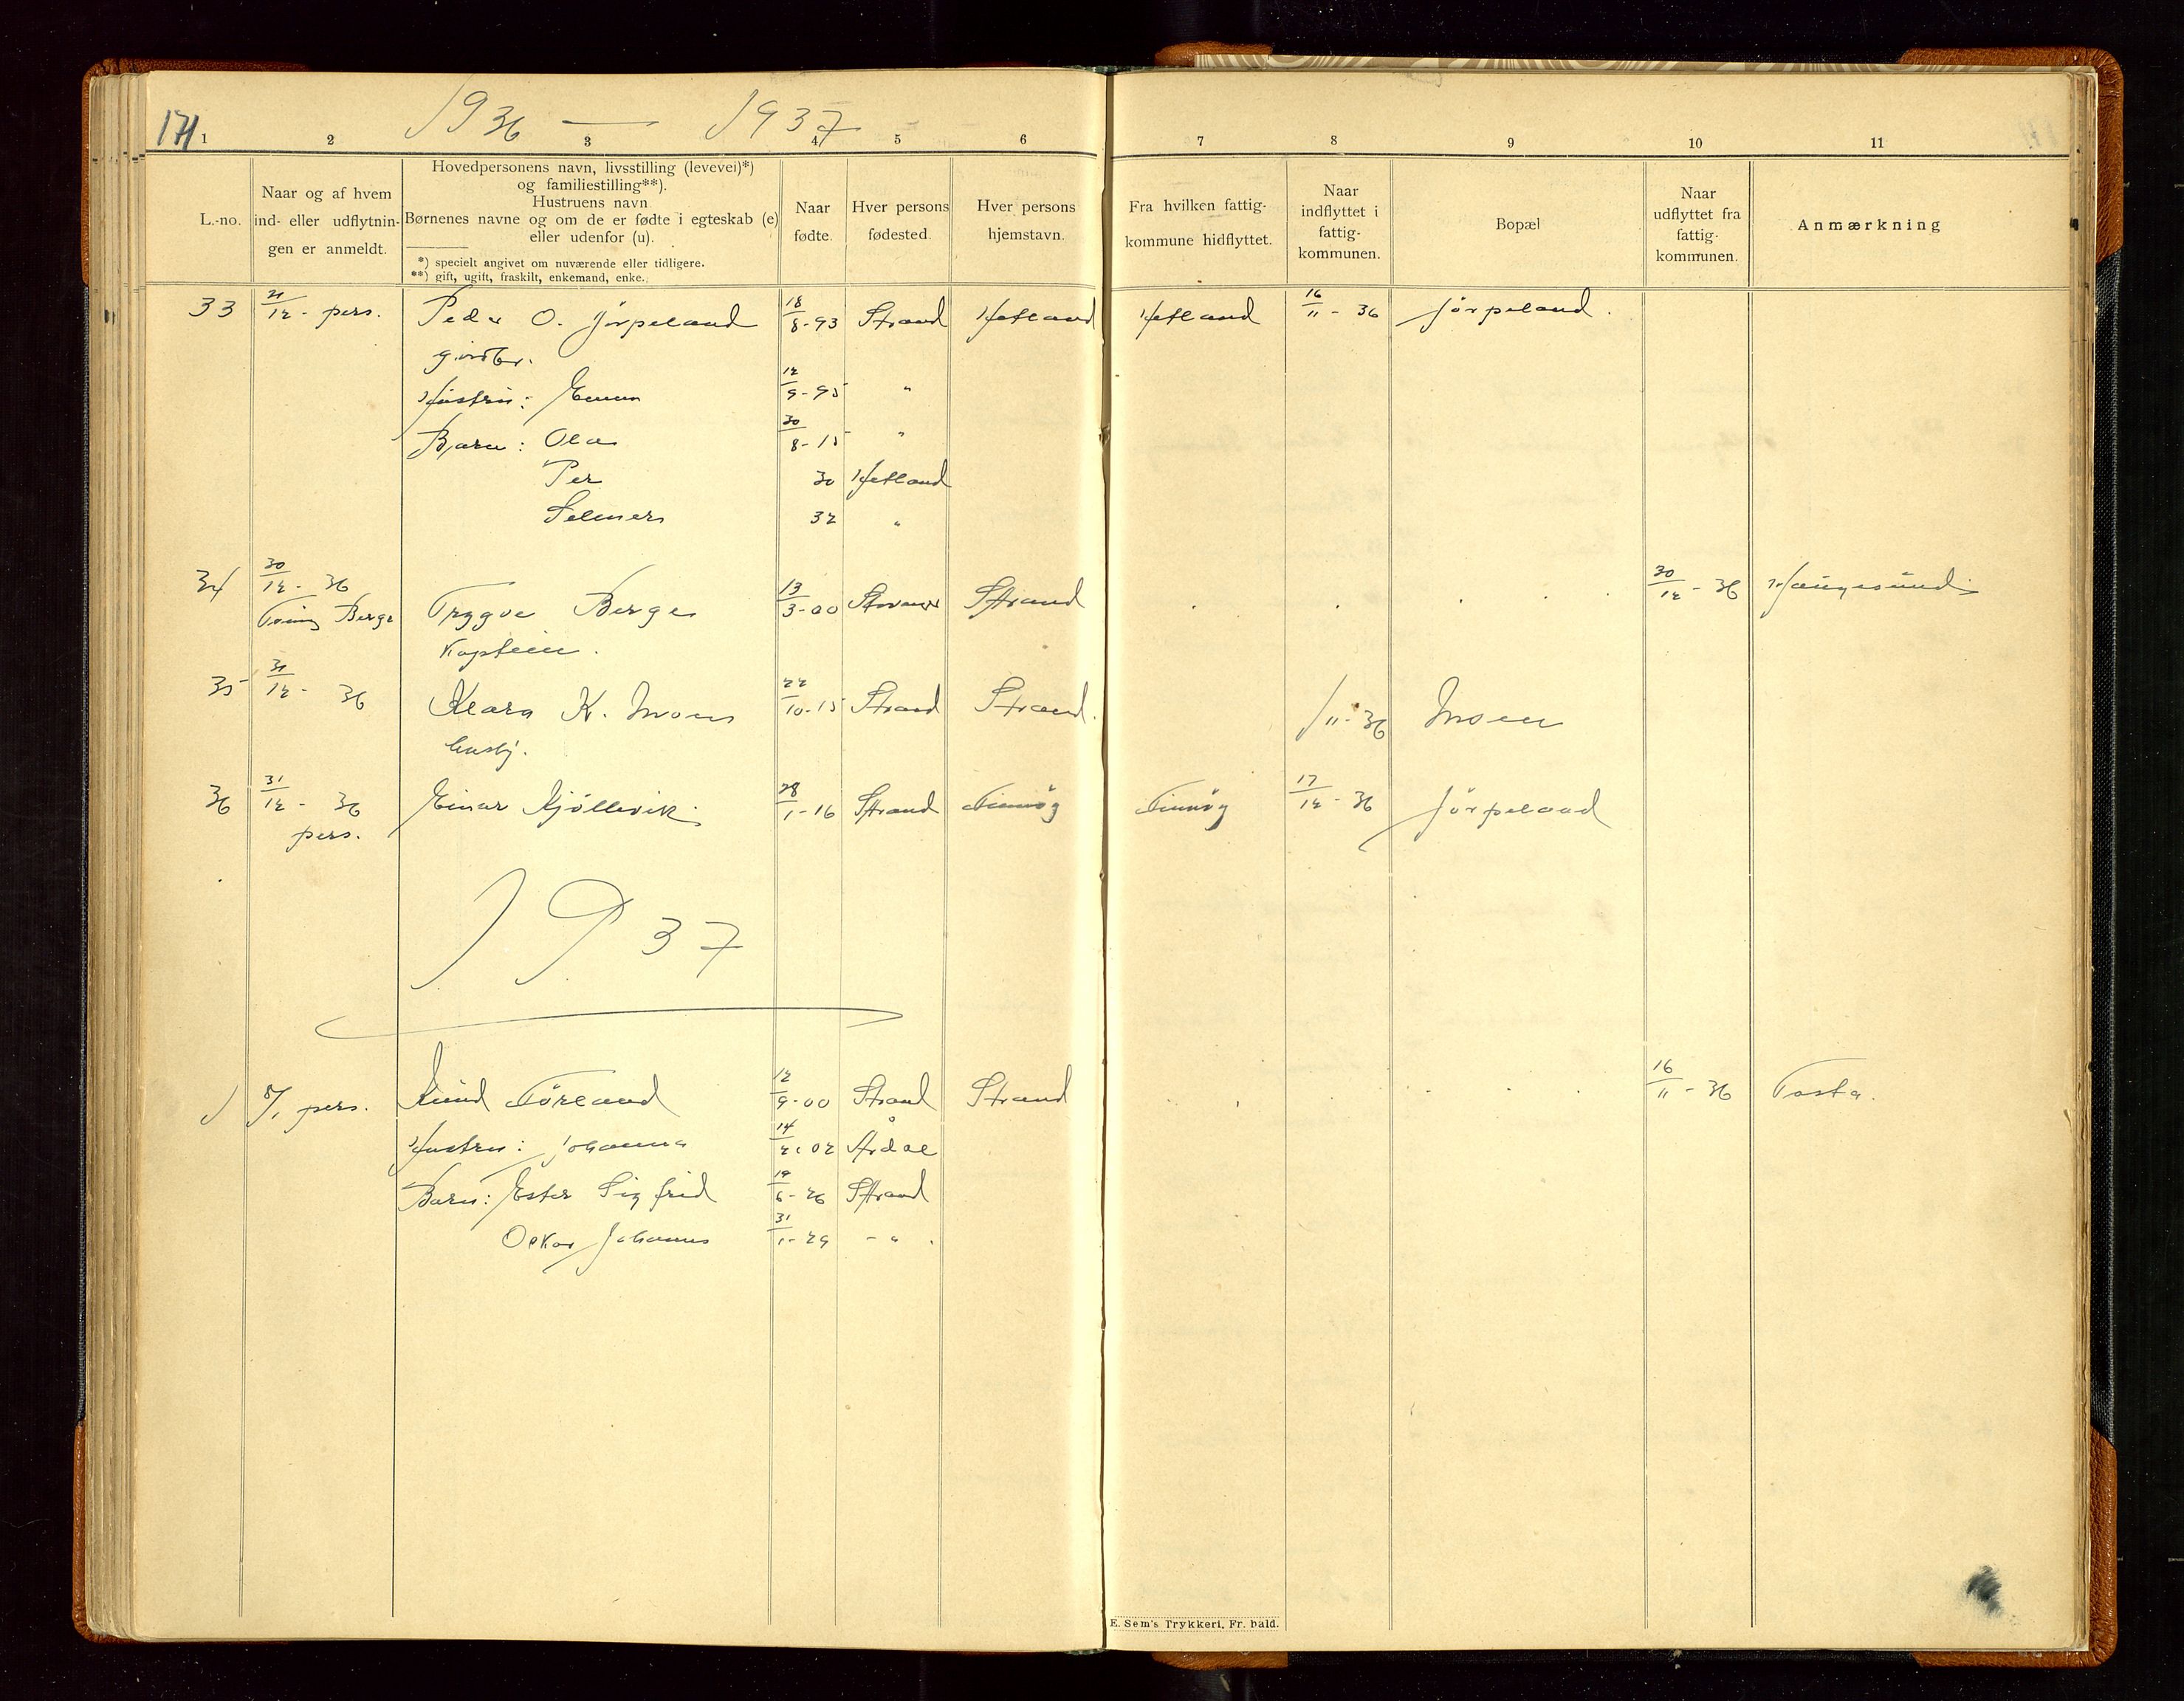 171
1936 — 1937
1 2 3 4 5 6 7 8 9 10 11
L.-no.
Naar og af hvem
ind- eller udflytnin-
gen er anmeldt.
Hovedpersonens navn, livsstilling (levevei)*)
og familiestilling**).
Hustruens navn
Børnenes navne og om de er fødte i egteskab (e)
eller udenfor (u).
*) specielt angivet om nuværende eller tidligere.
**) gift, ugift, fraskilt, enkemand, enke.
Naar
fødte.
Hver persons
fødested.
Hver persons
hjemstavn.
Fra hvilken fattig-
kommune hidflyttet.
Naar
indflyttet i
fattig-
kommunen.
Bopæl
Naar
udflyttet fra
fattig-
kommunen.
Anmærkning
33 21/12 - pers. Peder O. Jørpeland 18/8-93 Strand Hetland Hetland 16/11 - 36 Jørpeland.
Hustru: Emma 12/9-95 "
Barn: Ola 30/8-15 "
Per 30 Hetland
Selmer 32 "
34 30/12 - 36 Trygve Berge 13/3-00 Strand 30/12 - 36 Haugesund
Berge
Kaptein.
35 31/12 - 36 Klara K. Moen 22/10-15 Strand Strand. /11-36 Moen
husbj.
36 31/12 - 36 Einar Kjøllevik 28/1-16 Strand Finnøy Finnøy 17/12 - 36 Jørpeland
pers.
1937
1 8/1 pers. Knud Føreland 12/9-00 Strand Strand 16/11 - 36 Tasta.
Hustru: Johanna 14/2-02 Årdal
Barn: Ester Sigfrid 19/6-26 Strand
Oskar Johannes 31/1-29 - " .
E. Sem's Trykkeri, Fr. hald.